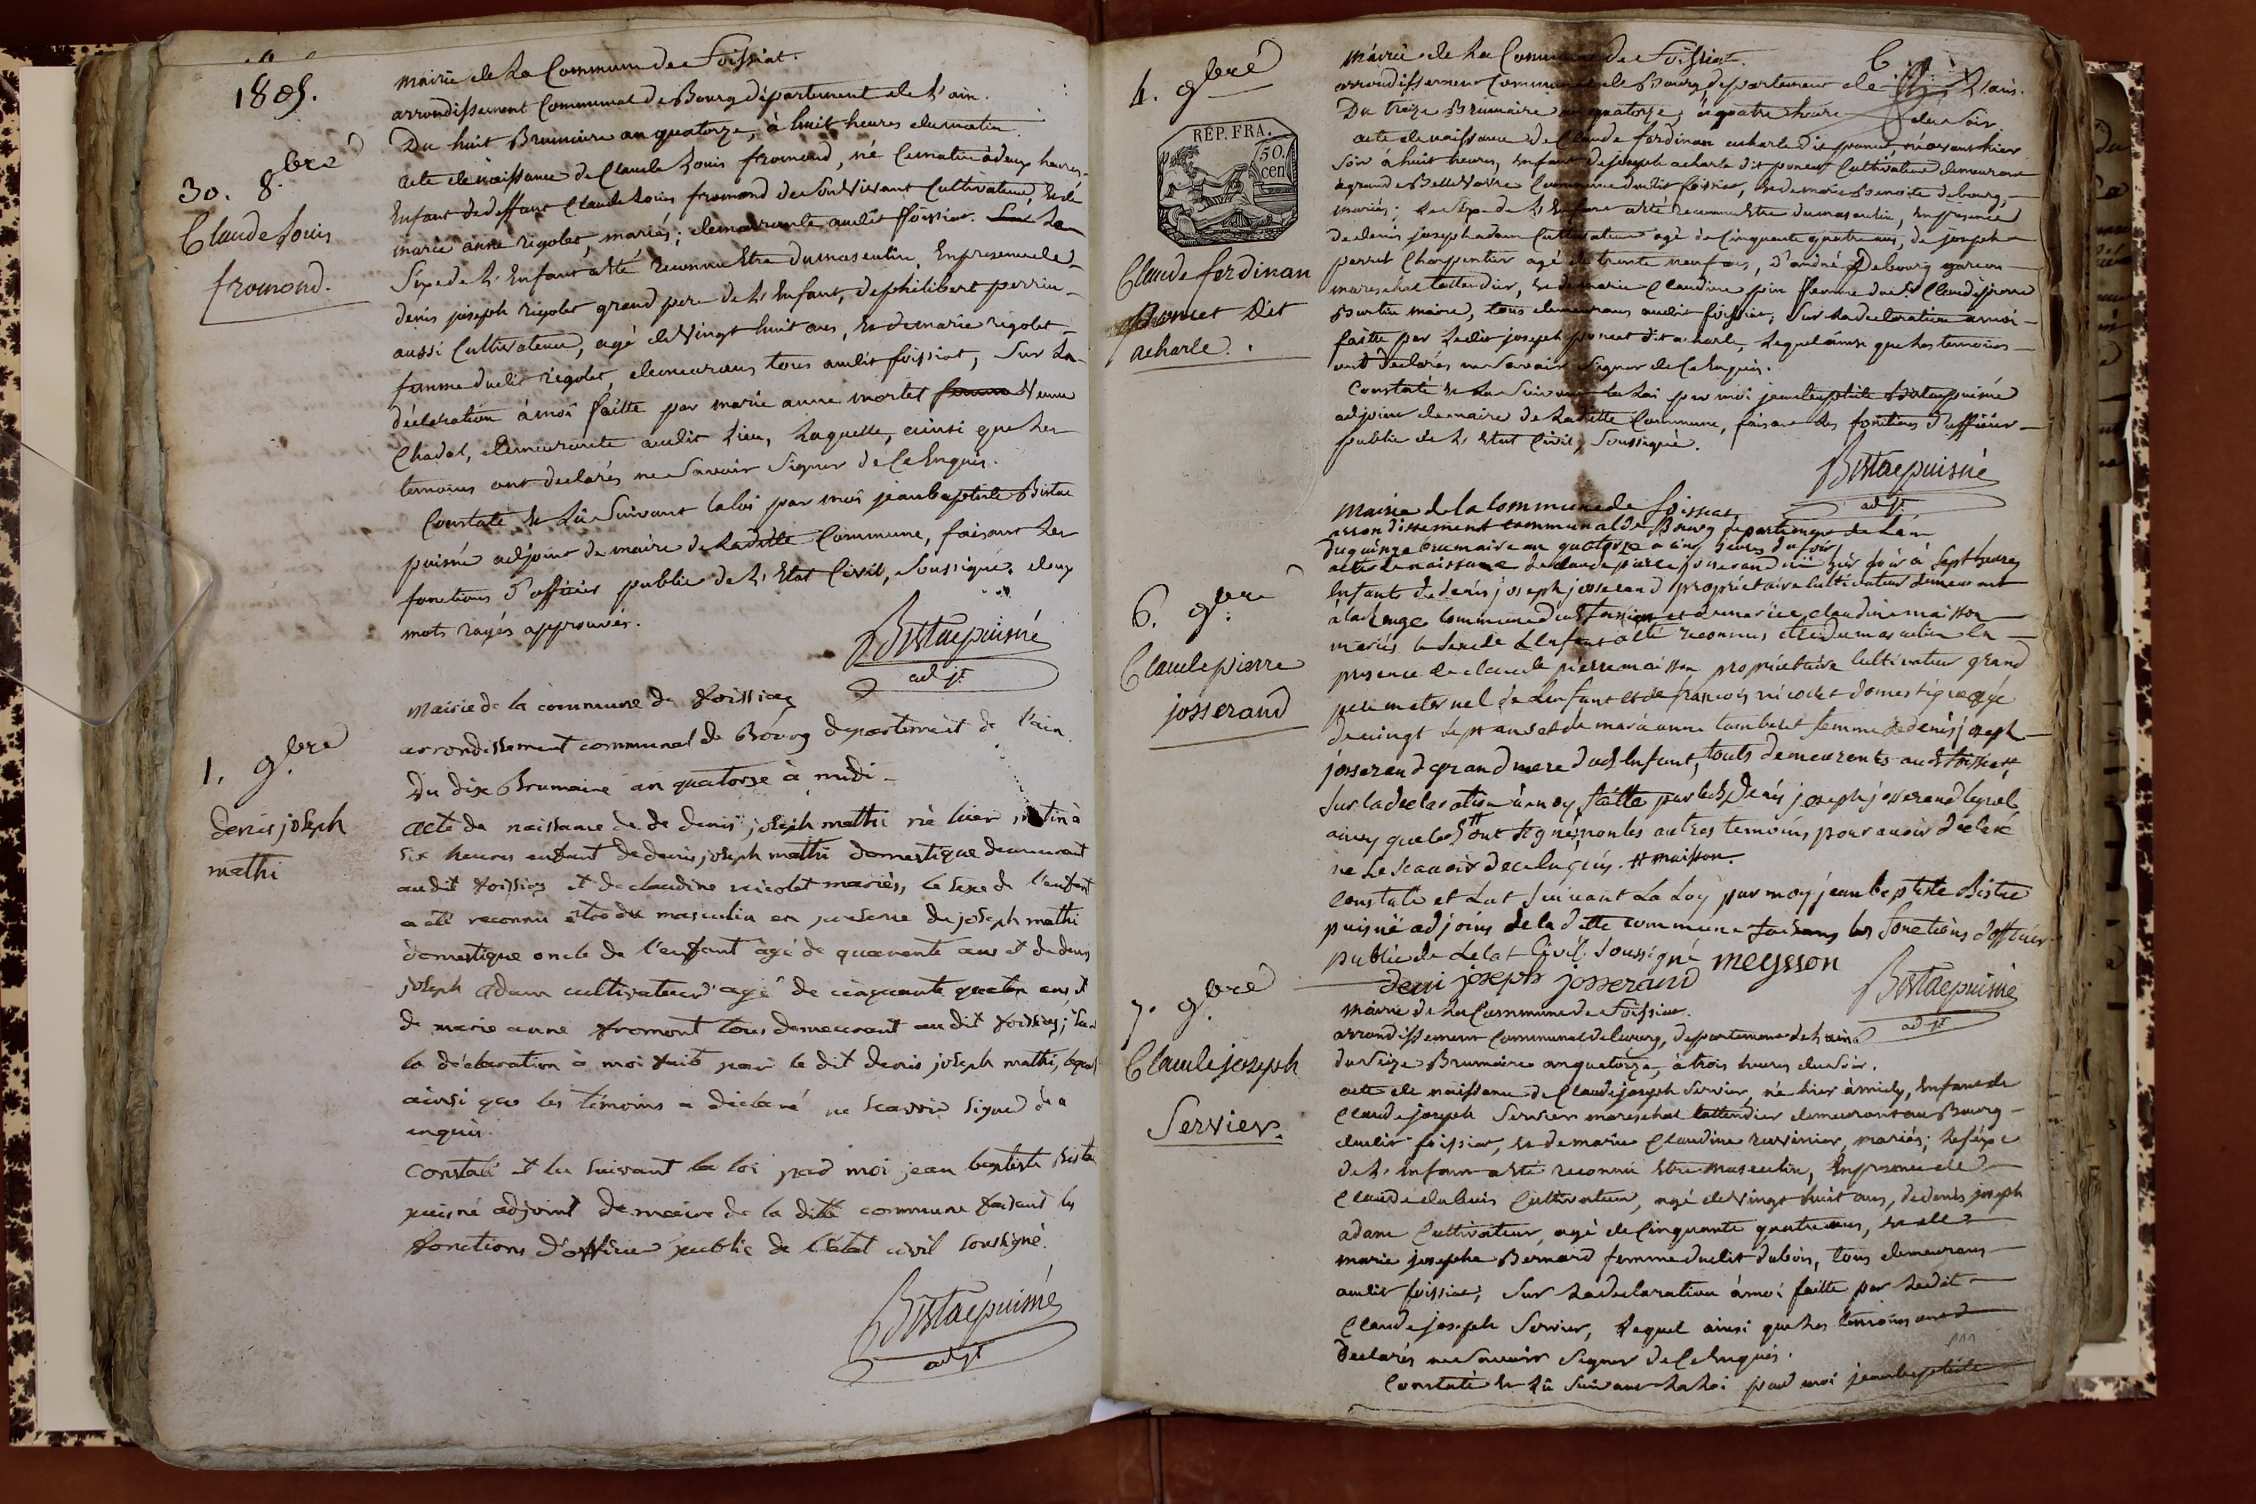 1805.
30. 8.bre
Claude Louis
fromond.
Mairie de La Commune de Foissiat.
arrondissement Communal de Bourg département de L'ain.
Du huit Brumaire an quatorze, à huit heures du matin.
acte de naissance de Claude Louis fromond, né Ce matin à deux heures
Enfant de deffunt Claude Louis fromond de Son Vivant Cultivateur, Et de
marie anne rigolet, mariés; demeurante audit foissiat. Le
Sexe de L'Enfant a été reconnu Etre du masculin, En presence de
denis joseph rigolet grand pere de L'Enfant, de philibert perrin
aussi Cultivateur, agé de Vingt huit ans, Et de marie rigolet
femme dudit rigolet, demeurans tous audit foissiat, Sur La
déclaration à moi faitte par marie anne mortel femme Veuve
Chadal, demeurante audit Lieu, Laquelle, ainsi que Les
temoins ont déclarés ne Savoir Signer de Ce Enquis.
Constaté Et Lû Suivant la loi par moi jean baptiste Bistac
puisné adjoint de maire de Laditte Commune, faisant Les
fonctions d'officier public de L'Etat Civil, Soussigné. deux
mots rayés approuvés.
Bistac puisné
adjt
1. 9.bre
denis joseph
mathi
Mairie de la commune de foissiat
arrondissement communal de Bourg departement de l'ain.
Du dix Brumaire an quatorze à midi
acte de naissance de de denis joseph mathi né hier matin à
six heures enfant de denis joseph mathi domestique demeurant
audit foissiat et de claudine nicolet mariés, le sexe de l'enfant
a été reconnu etre du masculin en presence de joseph mathi
domestique oncle de l'enfant agé de quarante ans et de denis
joseph adam cultivateur agé de cinquante quatre ans et
de marie anne fromont tous demeurant au dit foissiat; sur
la déclaration à moi faite par le dit denis joseph mathi, lequel
ainsi que les témoins a déclaré ne scavoir signer de ce
enquis.
Constaté et lu suivant la loi par moi jean baptiste Bistac
puisné adjoint de maire de la ditte commune faisant les
fonctions d'officier public de l'état civil soussigné.
Bistac puisné
adjt
4. 9.bre
RÉP. FRA.
50.
cen.
Claude ferdinan
poncet Dit
acharle.
6
Mairie de La Commune de Foissiat.
arrondissement Communal de Bourg departement de L'ain.
Du treize Brumaire an quatorze, à quatre heures du Soir
acte de naissance de Claude ferdinan acharle dit poncet, né avant hier
Soir à huit heures, Enfant de joseph acharle dit poncet Cultivateur demeurant
à grande Bellevavre Commune dudit foissiat, Et de marie Benoite debourg,
mariés; Le Sexe de L'Enfant a été reconnu Etre du masculin, En presence
de denis joseph adam Cultivateur agé de Cinquante quatre ans, de joseph
perret Charpentier agé de trente neuf ans, d'andré Debourg garcon
mareschal tattendier, Et de marie Claudine pin femme du Sr. Claude pierre
Burtin maire, tous demeurans audit foissiat, Sur La declaration à moi
faitte par Ledit joseph poncet dit acharle, Lequel ainsi que Les temoins
ont déclarés ne Savoir Signer de Ce Enquis.
Constaté Et Lu Suivant La Loi par moi jean baptiste Bistac puisné
adjoint de maire de Laditte Commune, faisant Les fonctions d'officier
public de L'Etat Civil, Soussigné.
Bistac puisné
adjt
6. 9.bre
Claude pierre
josserand
Mairie de la Commune de foissiat,
arrondissement communal de Bourg departement de Lain
Du quinze brumaire an quatorze a cinq heures du soir
acte de naissance de claude pierre josserand né hier soir à sept heures
Enfant de denis joseph josserand propriétaire cultivateur demeurant
mariés le sexe de L'enfant a été reconnus etre du masculin En
presence de claude pierre maisson propriétaire Cultivateur grand
pere maternel de Lenfant et de françois nicolet domestique agé
de vingt sept ans et de marie anne tambelet femme de denis joseph
josserand grand mere dud. Enfant, touts demeurents aud. foissiat,
Sur la declaration à moy faitte par led. Denis joseph josserand lequel
ainsy que led. # ont signé non les autres temoins pour avoir déclaré
ne Le Scavoir de ce Enquis. # maisson.
Constaté et Lut Suivant La Loy par moy jean baptiste Bistac
puisné adjoint de la ditte commune faisant les fonctions d'officier
public de Letat Civil. Soussigné meysson
deni joseph josserand
Bistac puisné
adjt
7. 9.bre
Claude joseph
Servier.
Mairie de La Commune de Foissiat.
arrondissement Communal de bourg, departement de L'ain
du Seize Brumaire an quatorze, à trois heures du Soir.
acte de naissance de Claude joseph Servier, né hier à midy, Enfant de
Claude joseph Servier mareschal tattendier demeurant au Bourg
dudit foissiat, Et de marie Claudine ruvinier, mariés; Le sexe
de L'Enfant a été reconnu Etre masculin, En presence de
Claude dubuis Cultivateur, agé de Vingt huit ans, de denis joseph
adam Cultivateur, agé de Cinquante quatre ans, Et de
marie josephe Bernard femme dudit dubois, tous demeurans
audit foissiat; Sur La declaration à moi faitte par Ledit
Claude joseph Servier, Lequel ainsi que Les temoins ont
Declarés ne Savoir Signer de Ce Enquis.
Constaté Et Lû Suivant La Loi par moi jean baptiste